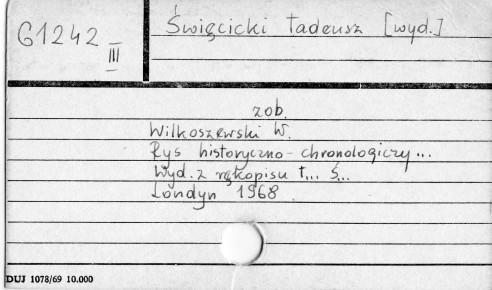 G1242 III
Święcicki Tadeusz [wyd.]
zob.
Wilkoszewski W.
Rys historyczno-chronologiczy...
Wyd. z rękopisu T... Ś...
Londyn 1968.
DUJ 1078/69 10.000